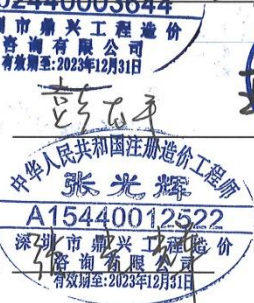 02440003644
圳市鼎兴工程造价
咨询有限公司
有效期至:2023年12月31日
中华人民共和国注册造价工程师
张光辉
A15440012522
深圳市鼎兴工程造价
咨询有限公司
有效期至:2023年12月31日